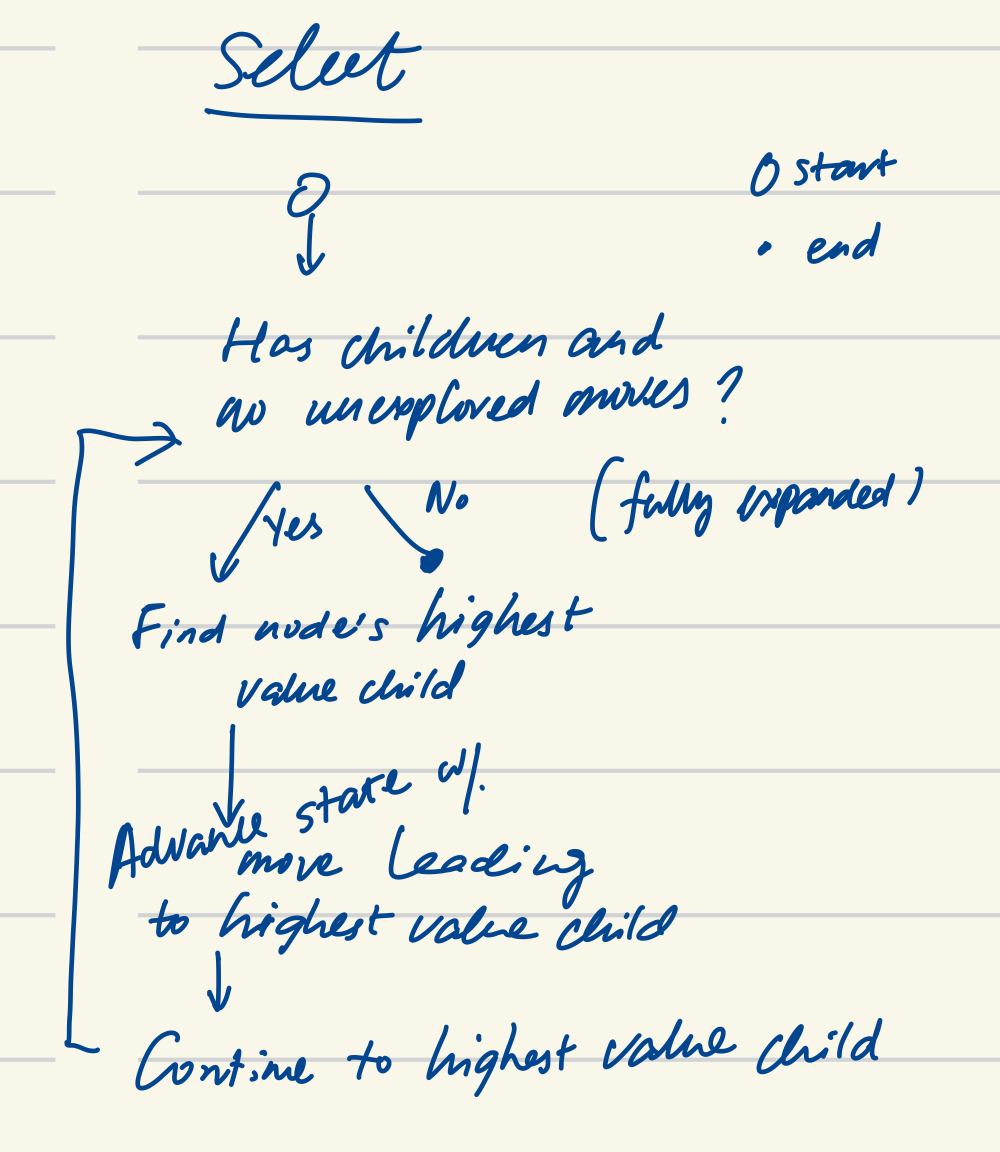 Select
O start
• end
Has children and
no unexplored moves?
Yes
No
(fully expanded)
Find node's highest
value child
Advance state w/.
move leading
to highest value child
Continue to highest value child